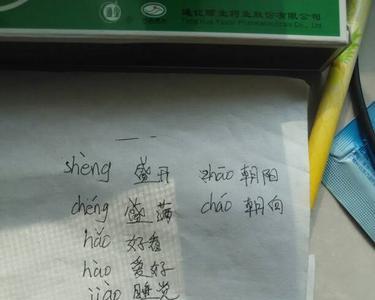 通化颐生药业股份有限公司
Pharmaceuticals Co., Ltd
shèng 盛开 zhāo 朝阳
chéng 盛满 cháo 朝向
hǎo 好看
hào 爱好
jiào 睡觉